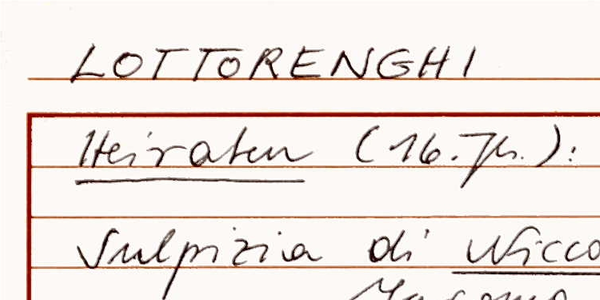 LOTTORENGHI
Heiraten (16. Jh.):
Sulpizia di Nicco